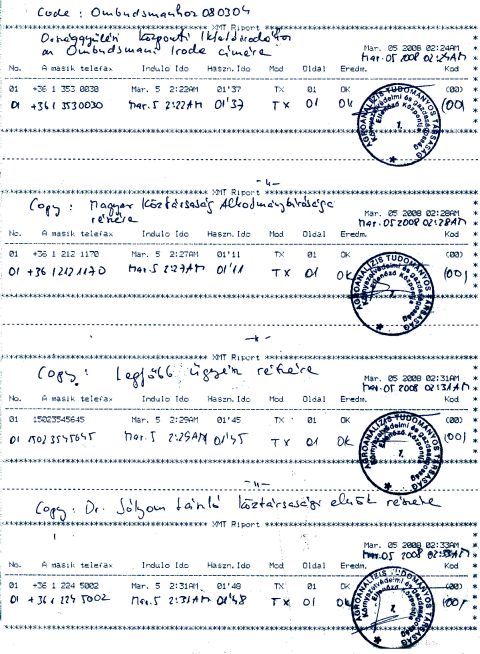 Code : Ombudsmanhoz 080304
XMT Riport
Országgyűlési Központi
az Ombudsmani Iroda címére
Mar. 05 2008 02:24AM
Mar.05 2008 02:24AM
No. A masik telefax Indulo Ido Haszn.Ido Mod Oldal Eredm. Kod
01 +36 1 353 0030 Mar. 5 2:22AM 01'37 TX 01 OK (00)
01 +36 1 3530030 Mar. 5 2:22AM 01'37 TX 01 OK (00)
AGROANALÍZIS TUDOMÁNYOS TÁRSASÁG
Környezetvédelmi és gazdaságossági
Ellenőrző Központja
1.
-"-
XMT Riport
Copy : Magyar Köztársaság Alkotmánybírósága
részére
Mar. 05 2008 02:28AM
Mar.05 2008 02:28AM
No. A masik telefax Indulo Ido Haszn.Ido Mod Oldal Eredm. Kod
01 +36 1 212 1170 Mar. 5 2:27AM 01'11 TX 01 OK (00)
01 +36 1 212 1170 Mar. 5 2:27AM 01'11 TX 01 OK (00)
AGROANALÍZIS TUDOMÁNYOS TÁRSASÁG
Környezetvédelmi és
Ellenőrző Központja
-"-
XMT Riport
Copy : Legfőbb Ügyész részére
Mar. 05 2008 02:31AM
Mar.05 2008 02:31AM
No. A masik telefax Indulo Ido Haszn.Ido Mod Oldal Eredm. Kod
01 15023545645 Mar. 5 2:29AM 01'45 TX 01 OK (00)
01 15023545645 Mar. 5 2:29AM 01'45 TX 01 OK (00)
AGROANALÍZIS TUDOMÁNYOS TÁRSASÁG
Környezetvédelmi és
Ellenőrző Központja
1.
-"-
Copy : Dr. Sólyom László Köztársasági elnök részére
XMT Riport
Mar. 05 2008 02:33AM
Mar.05 2008 02:33AM
No. A masik telefax Indulo Ido Haszn.Ido Mod Oldal Eredm. Kod
01 +36 1 224 5002 Mar. 5 2:31AM 01'48 TX 01 OK (00)
01 +36 1 224 5002 Mar. 5 2:31AM 01'48 TX 01 OK (00)
AGROANALÍZIS TUDOMÁNYOS TÁRSASÁG
Környezetvédelmi és
Ellenőrző Központja
1.